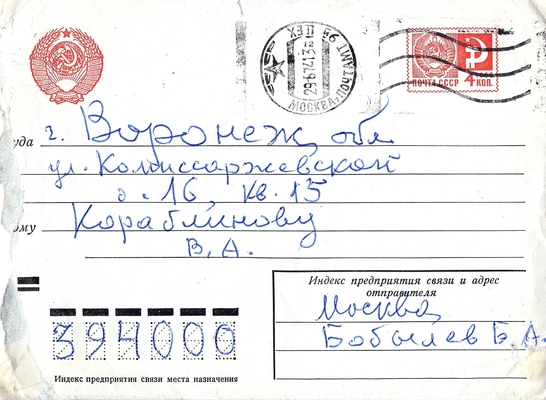 ПОЧТА СССР 4 КОП.
МОСКВА ПОЧТАМТ
29-6 74 13
ЦЕХ
г. Воронеж, обл
уда
ул. Комиссаржевской
д. 16, кв. 15
ому
Кораблинову
В. А.
Индекс предприятия связи и адрес
отправителя
Москва
Бобылев Б. А.
394000
Индекс предприятия связи места назначения